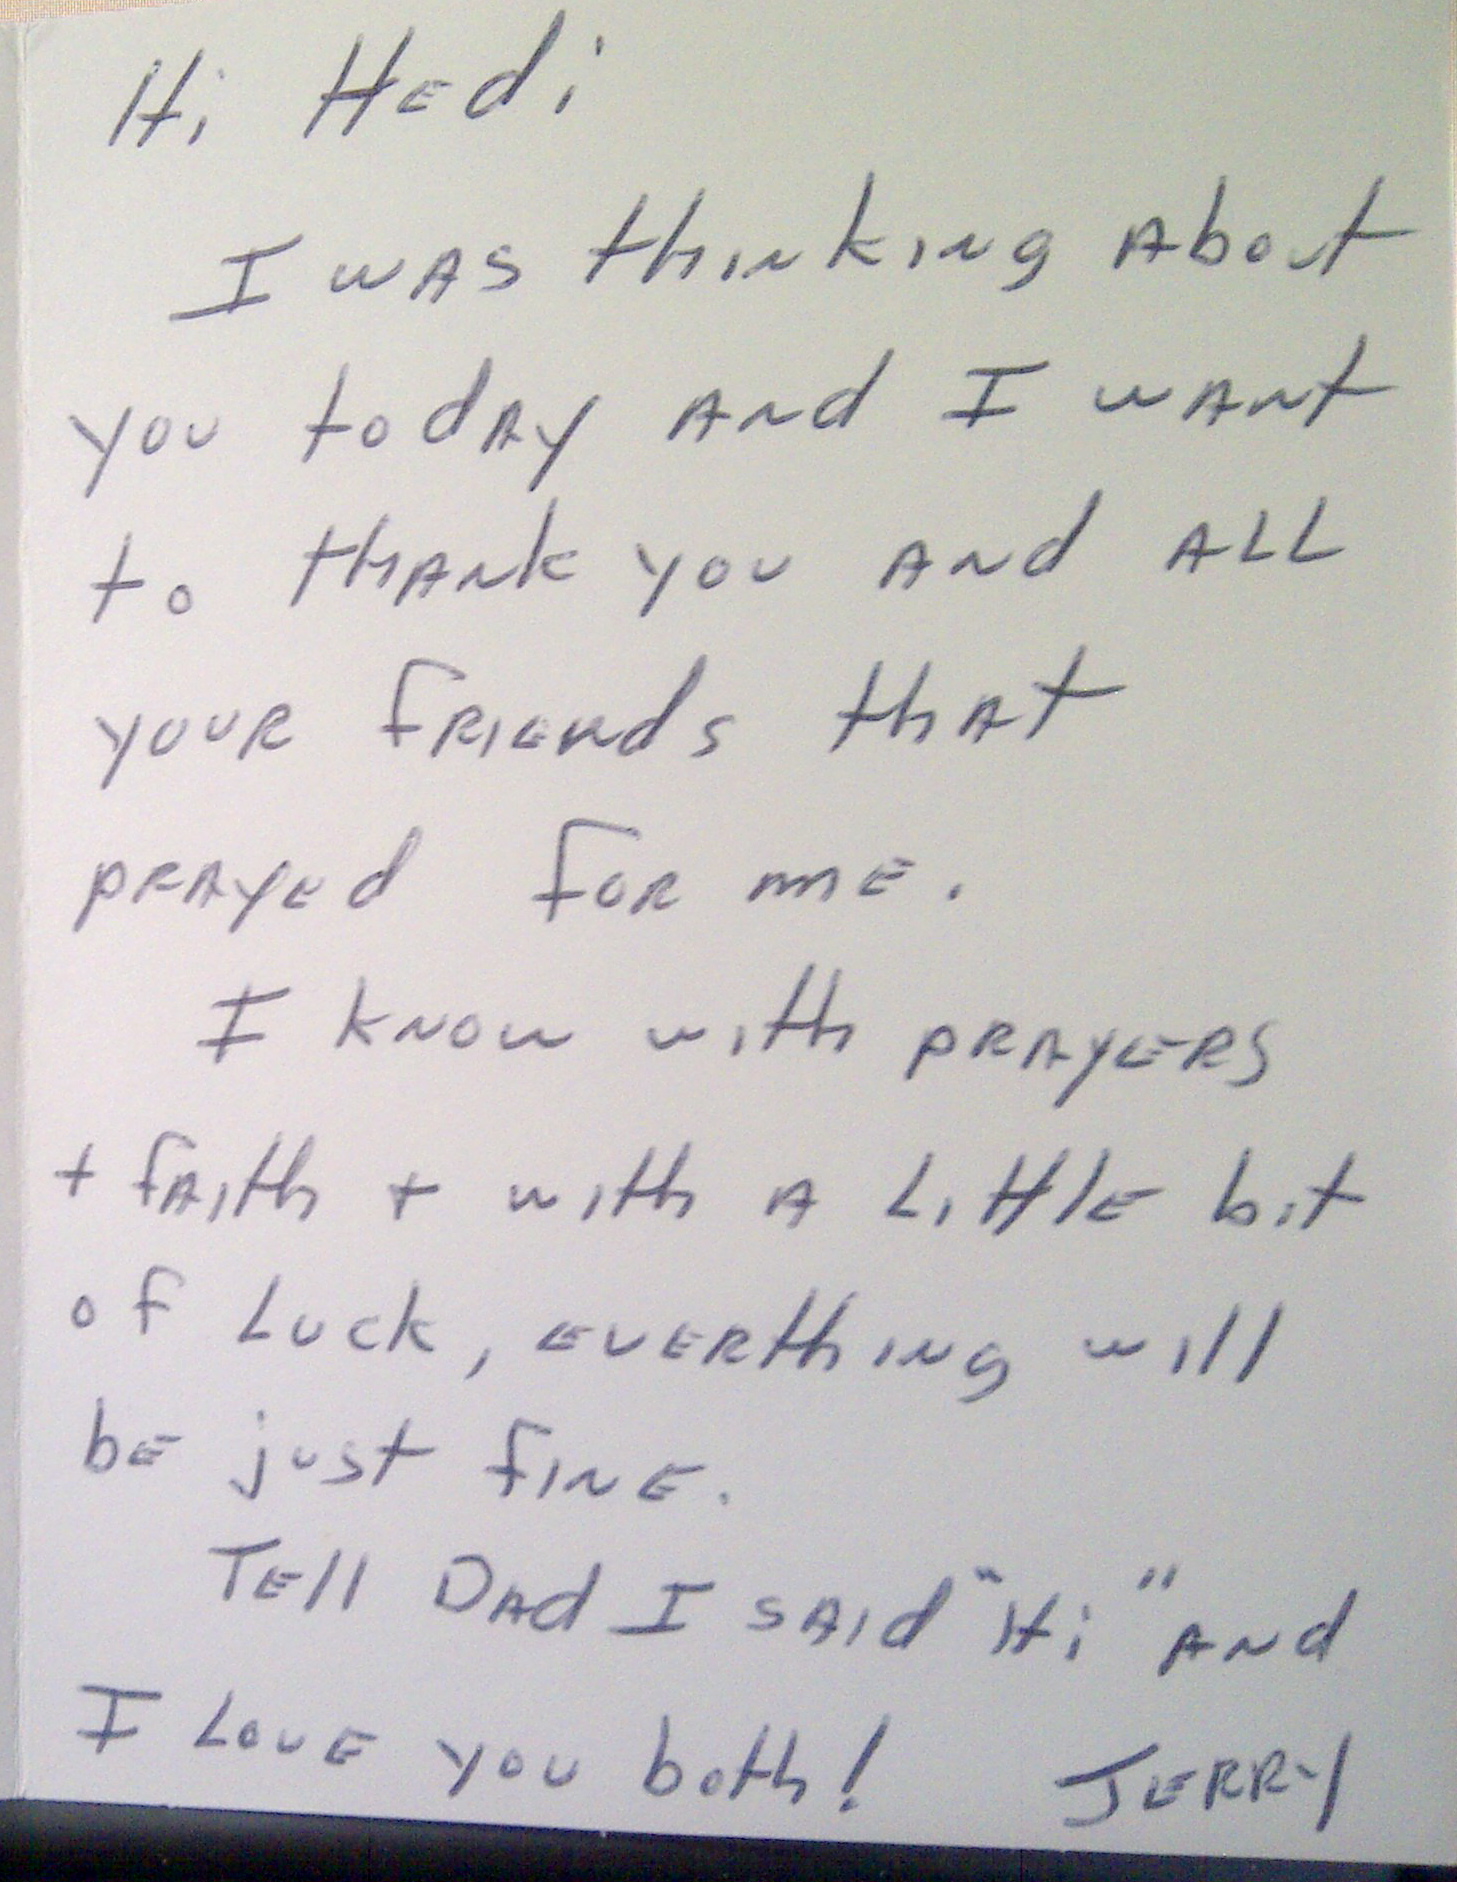 Hi Hedi
I was thinking about
you today and I want
to thank you and all
your friends that
prayed for me.
I know with prayers
+ faith + with a little bit
of luck, everthing will
be just fine.
Tell Dad I said "Hi" and
I love you both! Jerry